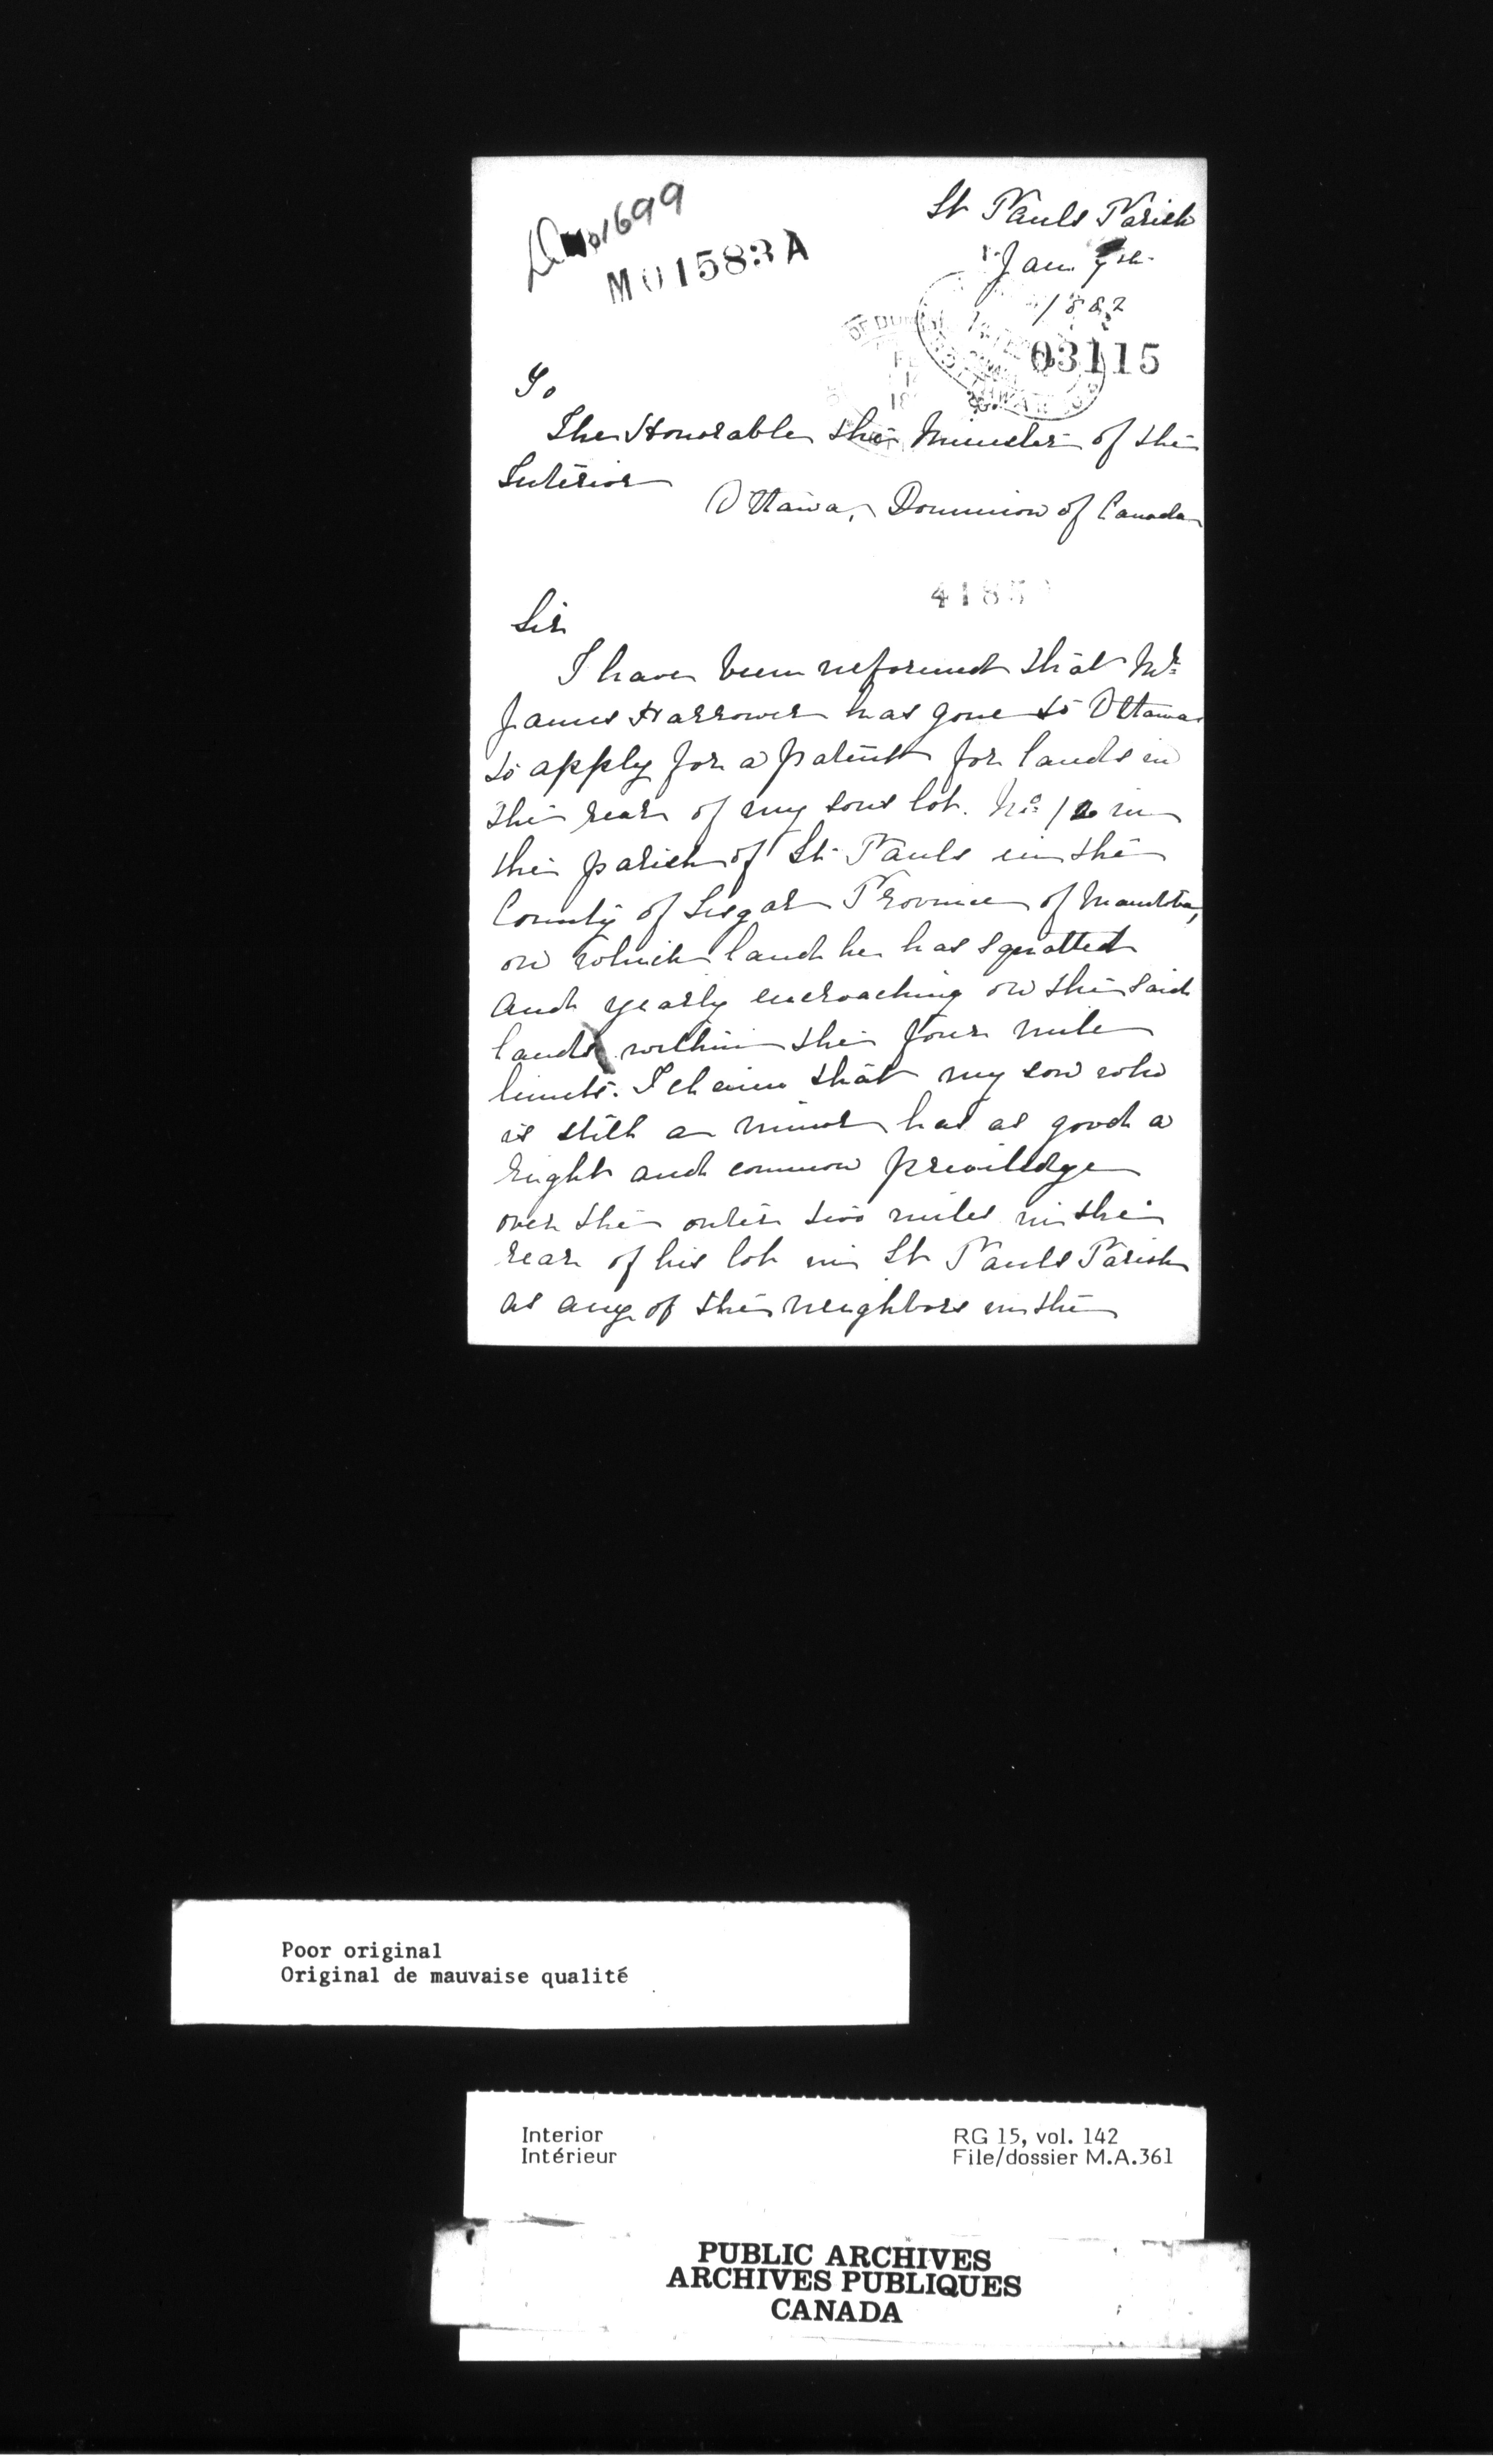 1699
M01583A
St Pauls Parish
Jany 7th
1882
03115
To
The Honorable the Minister of the
Interior
Ottawa, Dominion of Canada
4185
Sir
I have been informed that Mr
James Harrower has gone to Ottawa
to apply for a patent for lands in
the rear of my sons lot. No 12 in
the parish of St Pauls in the
County of Lisgar Province of Manitoba,
on which land he has squatted
and yearly encroaching on the said
lands within the four mile
limits. I claim that my son who
is still a minor has as good a
right and common priviledge
over the outer two miles in the
rear of his lot in St Pauls Parish
as any of the neighbors in the
Poor original
Original de mauvaise qualité
Interior
Intérieur
RG 15, vol. 142
File/dossier M.A.361
PUBLIC ARCHIVES
ARCHIVES PUBLIQUES
CANADA